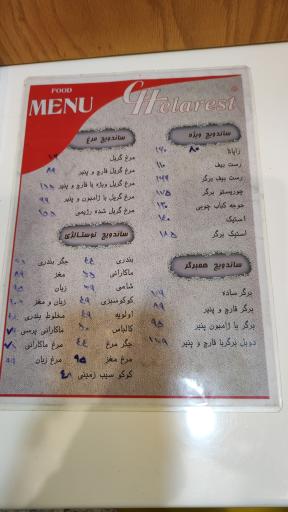 FOOD
MENU
Holarest
ساندویچ ویژه
زاپاتا ۸۰
رست بیف ۱۱۰
رست بیف برگر
چوریستو برگر
جوجه کباب چوبی ۱۳۰
استیک
استیک برگر ۱۸۵
ساندویچ همبرگر
برگر ساده
برگر قارچ و پنیر ۸۹
برگر با ژامبون پنیر ۹۵
دوبل برگر با قارچ و پنیر
ساندویچ مرغ
مرغ گریل
مرغ گریل قارچ و پنیر
مرغ گریل ویژه با قارچ و پنیر
مرغ گریل با ژامبون و پنیر ۹۹
مرغ گریل شده رژیمی
ساندویچ نوستالژی
بندری ۴۵ جگر بندری
ماکارانی مغز
شامی زبان
کوکوسبزی ۴۹ زبان و مغز
اولویه ۴۹ مخلوط بندری
کالباس ماکارانی پرسی
جگر مرغ ۴۴ مرغ ماکارانی
مرغ مغز ۹۵ مرغ زبان
کوکو سیب زمینی ۴۸